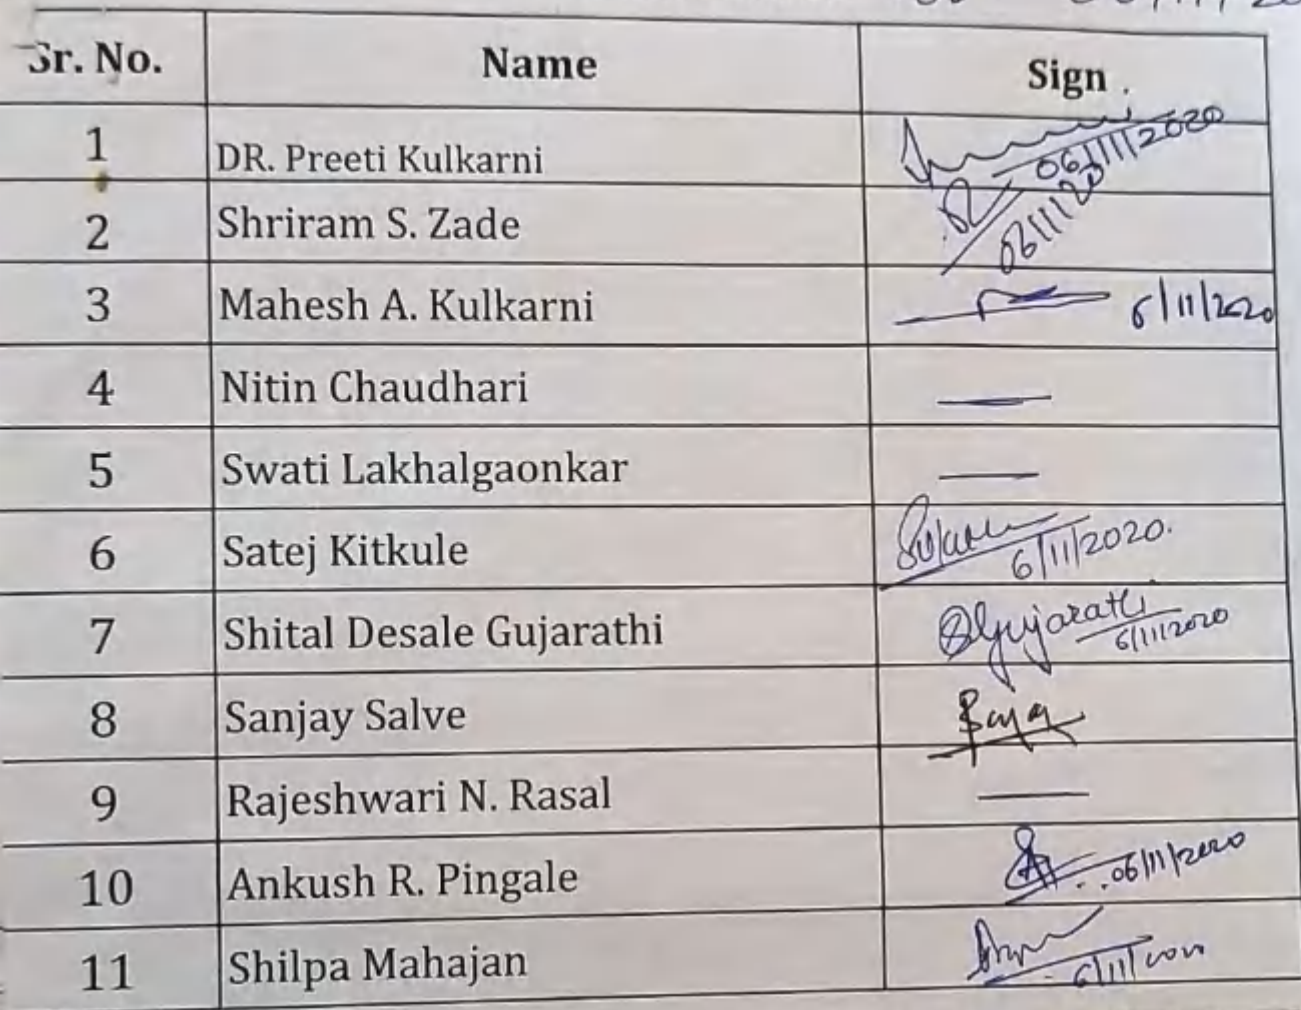 Sr. No. Name Sign .
1 DR. Preeti Kulkarni 06/11/2020
2 Shriram S. Zade 06/11/20
3 Mahesh A. Kulkarni 6/11/2020
4 Nitin Chaudhari —
5 Swati Lakhalgaonkar —
6 Satej Kitkule 6/11/2020.
7 Shital Desale Gujarathi SGujarathi 6/11/2020
8 Sanjay Salve
9 Rajeshwari N. Rasal —
10 Ankush R. Pingale 06/11/2020
11 Shilpa Mahajan 6/11/2020